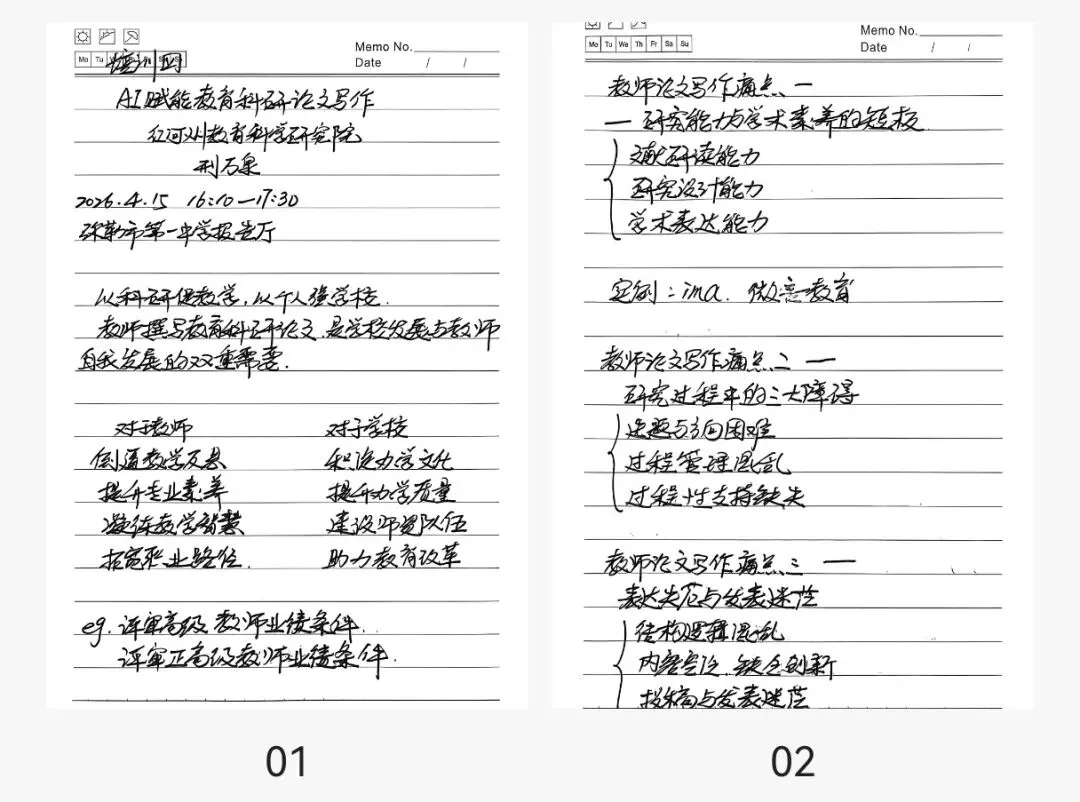 Memo No.
Mo Tu
Date / /
培训四
AI赋能教育科研论文写作
红河州教育科学研究院
刑万泉
2026.4.15 16:10—17:30
弥勒市第一中学报告厅
以科研促教学，以个人强学校.
教师撰写教育科研论文，是学校发展与教师
自我发展的双重需要.
对于教师 对于学校
倒逼教学反思 积淀办学文化
提升专业素养 提升办学质量
凝练教学智慧 建设师资队伍
拓宽职业路径. 助力教育改革
eg. 评审高级教师业绩条件.
评审正高级教师业绩条件.
01
Memo No.
Mo Tu We Th Fr Sa Su
Date / /
教师论文写作痛点、一
一 研究能力与学术素养的短板.
文献研读能力
研究设计能力
学术表达能力
实例：ima.
教育
教师论文写作痛点、二 —
研究过程中的三大障碍
选题与方向困难
过程管理混乱
过程性支持缺失
教师论文写作痛点、三 —
表达失范与发表迷茫
结构逻辑混乱
内容空泛、缺乏创新
投稿与发表迷茫
02